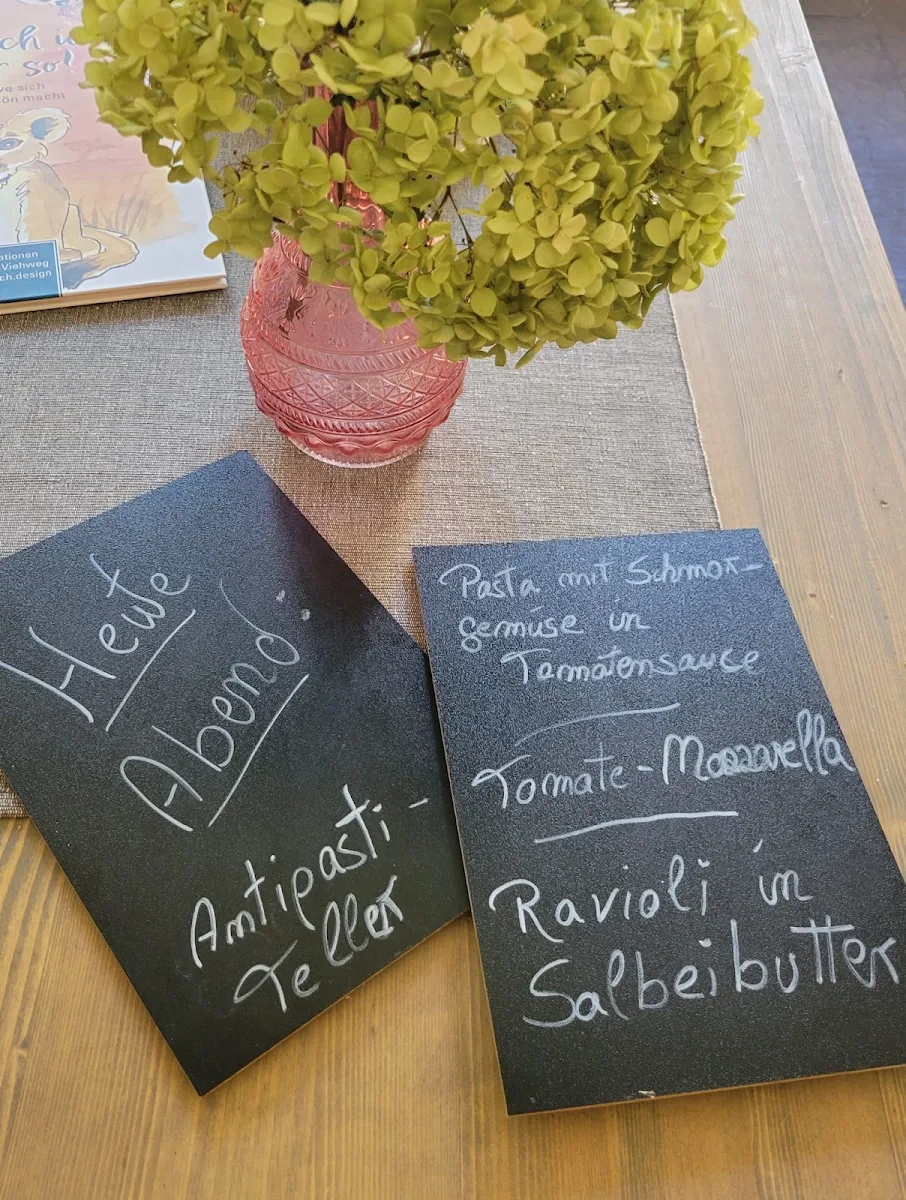 so!
ve sich
ön macht
ationen
Viehweg
ch.design
Heute
Abend
Antipasti-
Teller
Pasta mit Schmor-
gemüse in
Tomatensauce
Tomate-Mozzarella
Ravioli in
Salbeibutter